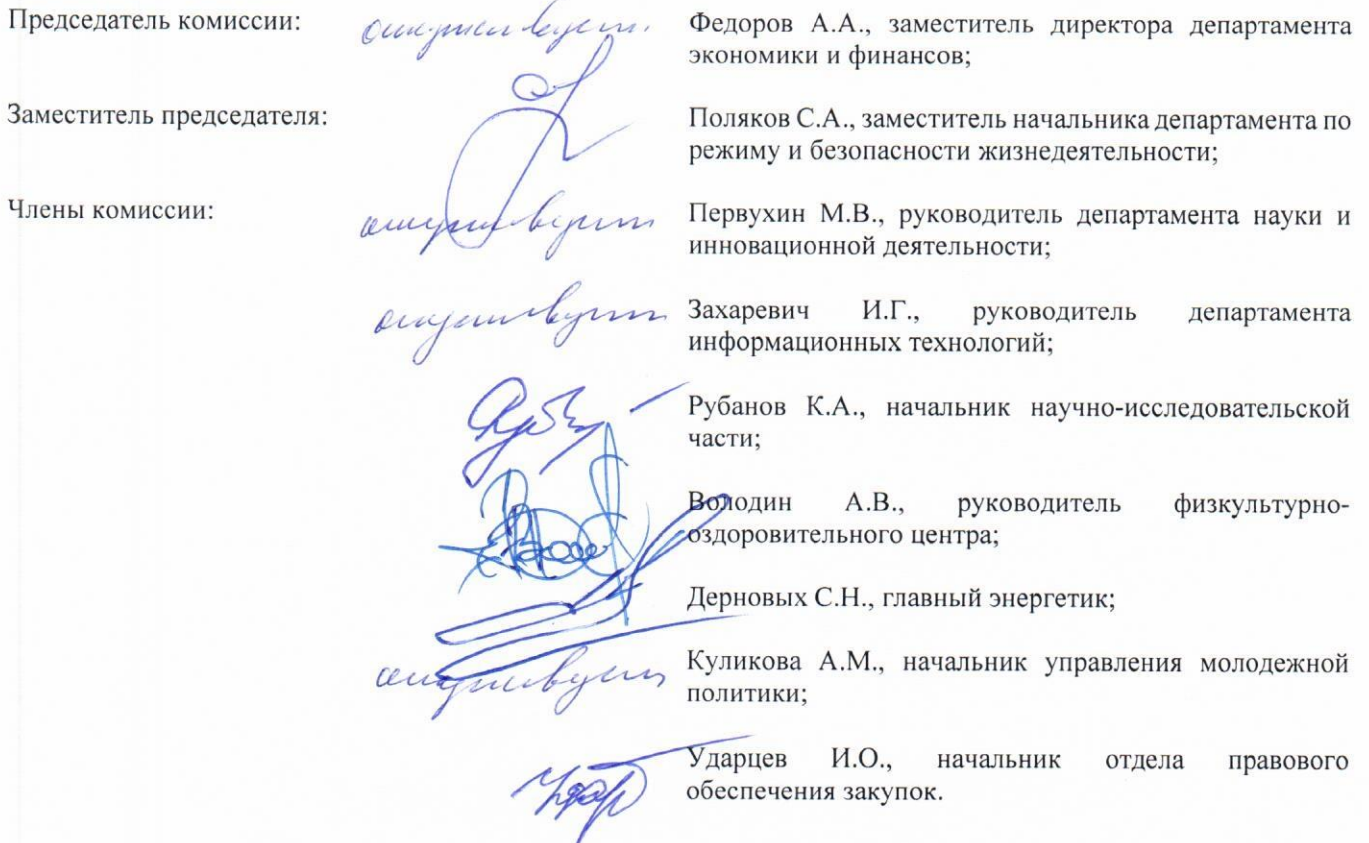 Председатель комиссии: отсутствует Федоров А.А., заместитель директора департамента
экономики и финансов;
Заместитель председателя: Поляков С.А., заместитель начальника департамента по
режиму и безопасности жизнедеятельности;
Члены комиссии: отсутствует Первухин М.В., руководитель департамента науки и
инновационной деятельности;
отсутствует Захаревич И.Г., руководитель департамента
информационных технологий;
Рубанов К.А., начальник научно-исследовательской
части;
Володин А.В., руководитель физкультурно-
оздоровительного центра;
Дерновых С.Н., главный энергетик;
отсутствует Куликова А.М., начальник управления молодежной
политики;
Ударцев И.О., начальник отдела правового
обеспечения закупок.